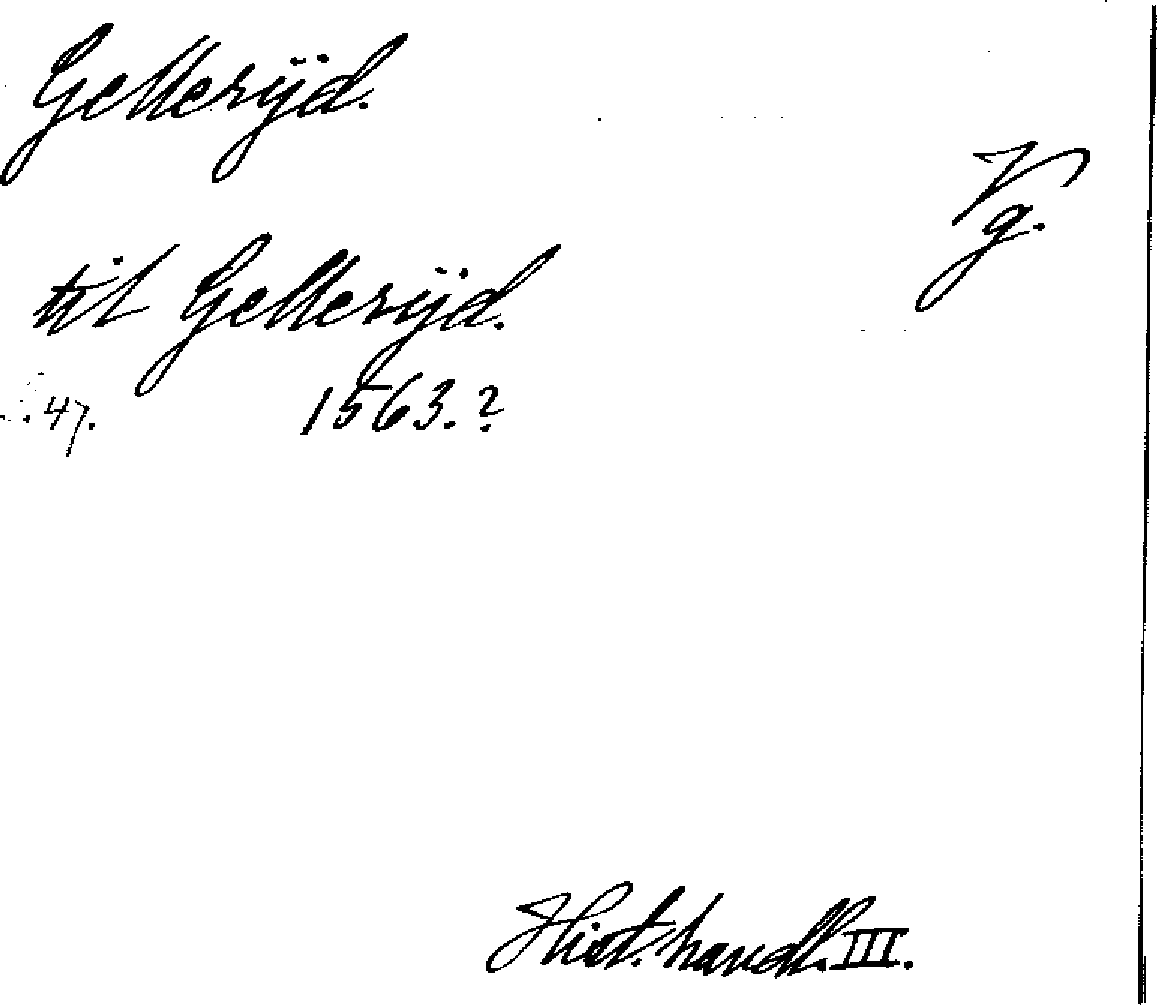 Gellerÿd.
Vg.
til Gellerÿd.
. 47. 1563.?
Hist. handl. III.